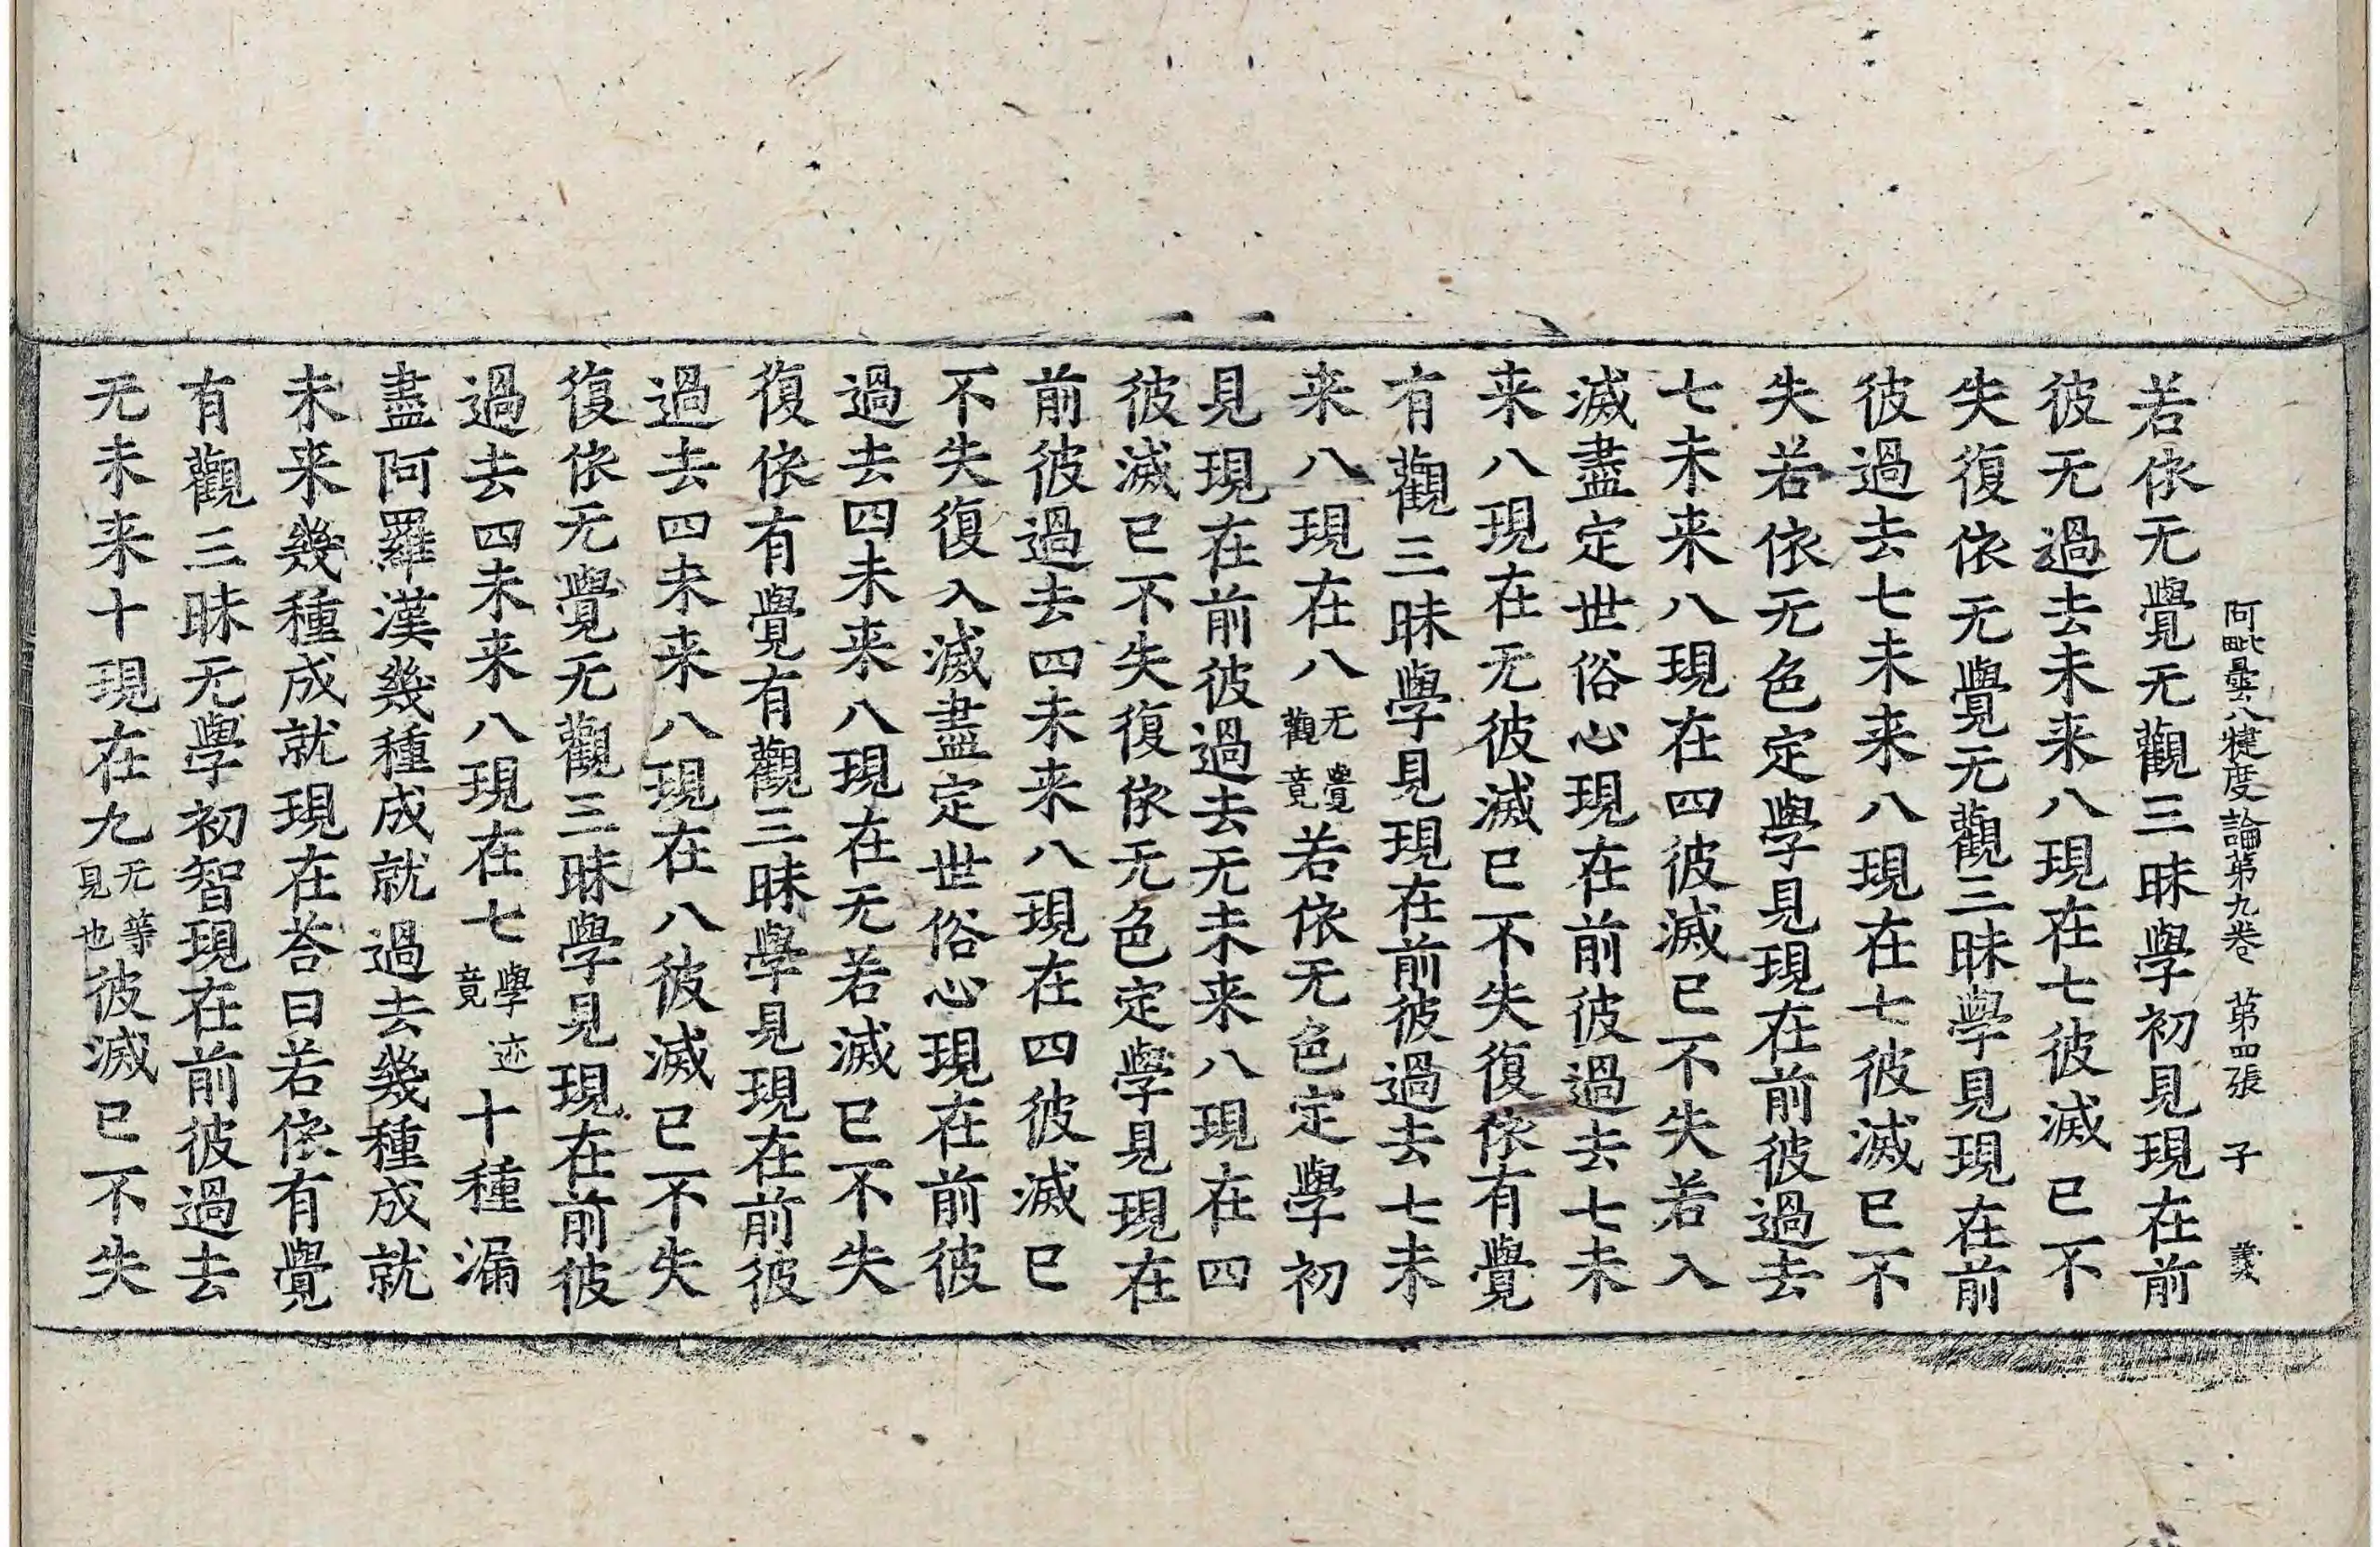 阿毗曇八犍度論第九卷 第四張 子 義
若依无覺无觀三昧學初見現在前
彼无過去未来八現在七彼滅已不
失復依无覺无觀三昧學見現在前
彼過去七未来八現在七彼滅已不
失若依无色定學見現在前彼過去
七未来八現在四彼滅已不失若入
滅盡定世俗心現在前彼過去七未
来八現在无彼滅已不失復依有覺
有觀三昧學見現在前彼過去七未
来八現在八无覺觀竟若依无色定學初
見現在前彼過去无未来八現在四
彼滅已不失復依无色定學見現在
前彼過去四未来八現在四彼滅已
不失復入滅盡定世俗心現在前彼
過去四未来八現在无若滅已不失
復依有覺有觀三昧學見現在前彼
過去四未来八現在八彼滅已不失
復依无覺无觀三昧學見現在前彼
過去四未来八現在七學迹竟十種漏
盡阿羅漢幾種成就過去幾種成就
未来幾種成就現在荅曰若依有覺
有觀三昧无學初智現在前彼過去
无未来十現在九无等見也彼滅已不失